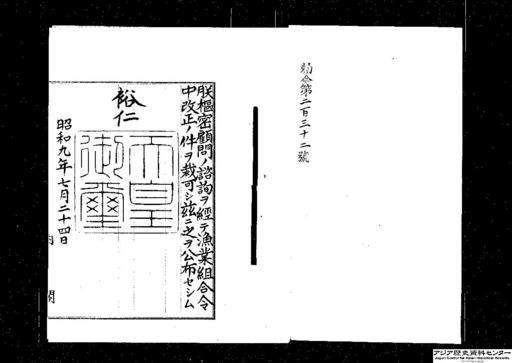 勅令第二百三十二號
朕樞密顧問ノ諮詢ヲ經テ漁業組合令
中改正ノ件ヲ裁可シ茲ニ之ヲ公布セシム
裕仁
天皇
御璽
昭和九年七月二十四日
アジア歴史資料センター
Japan Center for Asian Historical Records